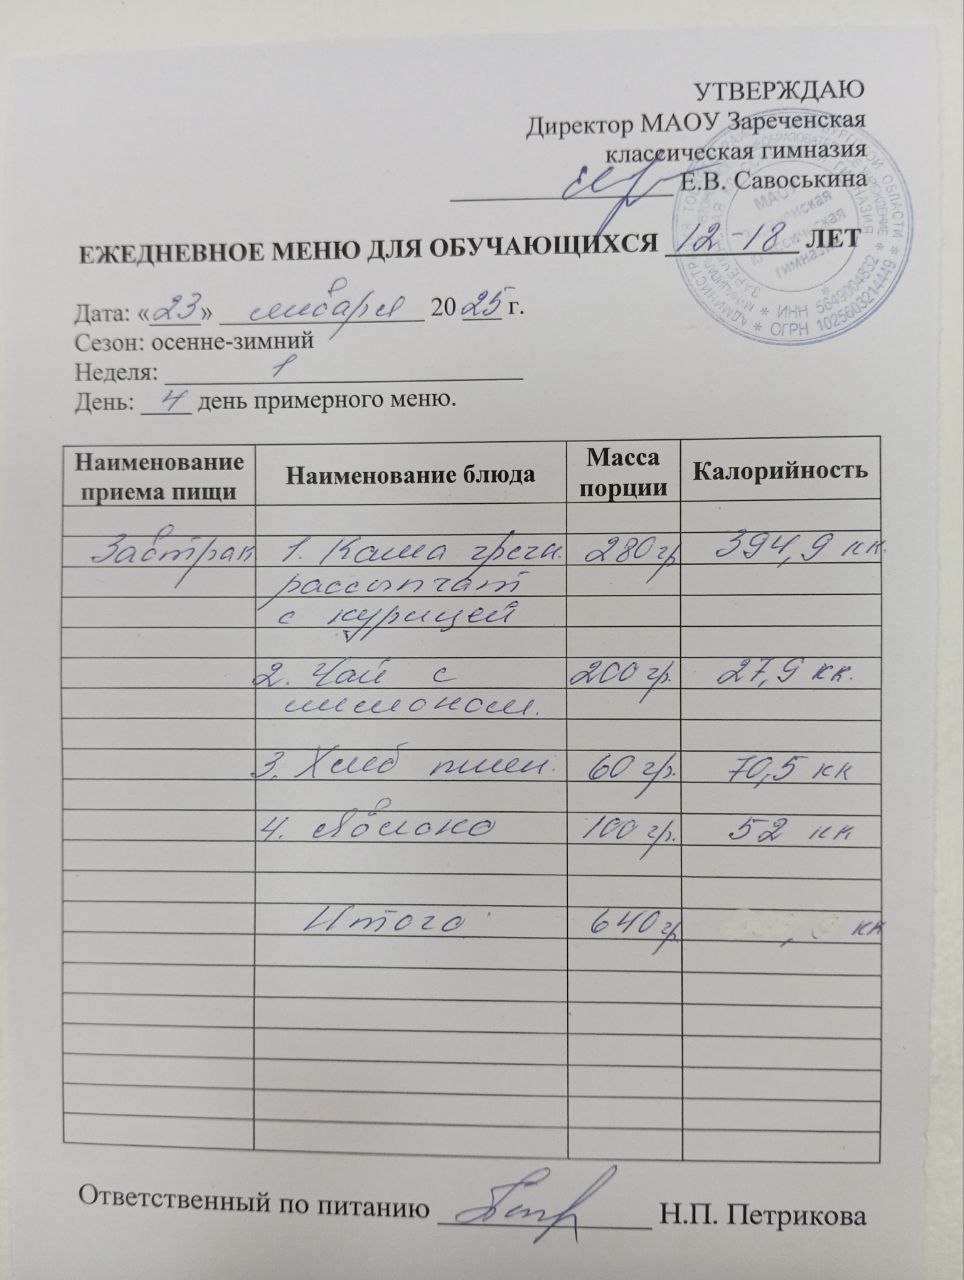 УТВЕРЖДАЮ
Директор МАОУ Зареченская
классическая гимназия
Е.В. Савоськина
ЕЖЕДНЕВНОЕ МЕНЮ ДЛЯ ОБУЧАЮЩИХСЯ 12-18 ЛЕТ
Дата: «23» января 2025 г.
Сезон: осенне-зимний
Неделя: 1
День: 4 день примерного меню.
Наименование приема пищи Наименование блюда Масса порции Калорийность
Завтрак 1. Каша гречн. 280 гр 394,9 кк.
рассыпчат
с курицей
2. Чай с 200 гр. 27,9 кк.
лимоном.
3. Хлеб пшен. 60 гр. 70,5 кк
4. Яблоко 100 гр. 52 кк
Итого 640 гр , кк
Ответственный по питанию Н.П. Петрикова
МАОУ
Зареченская
классическая
гимназия
* ИНН 5649004832 *
* ОГРН 1025603214449 *